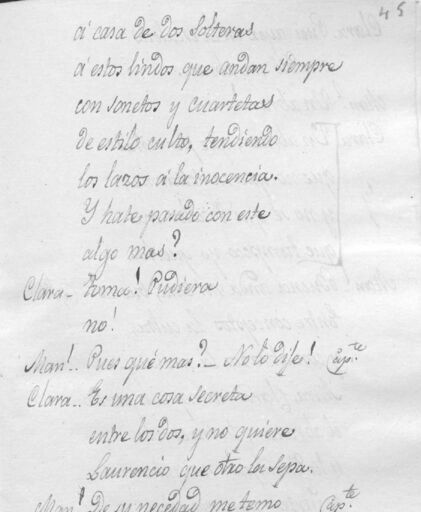 45
á casa de dos solteras
á estos lindos que andan siempre
con sonetos y cuartetas
de estilo culto, tendiendo
los lazos á la inocencia.
Y hate pasado con este
algo mas?
Clara - Toma! Pudiera
no!
Man.l.. Pues qué mas? - No lo dije! ap.te
Clara.. Es una cosa secreta
entre los dos, y no quiere
Laurencio que otro la sepa.
Man.l De su necedad me temo ap.te